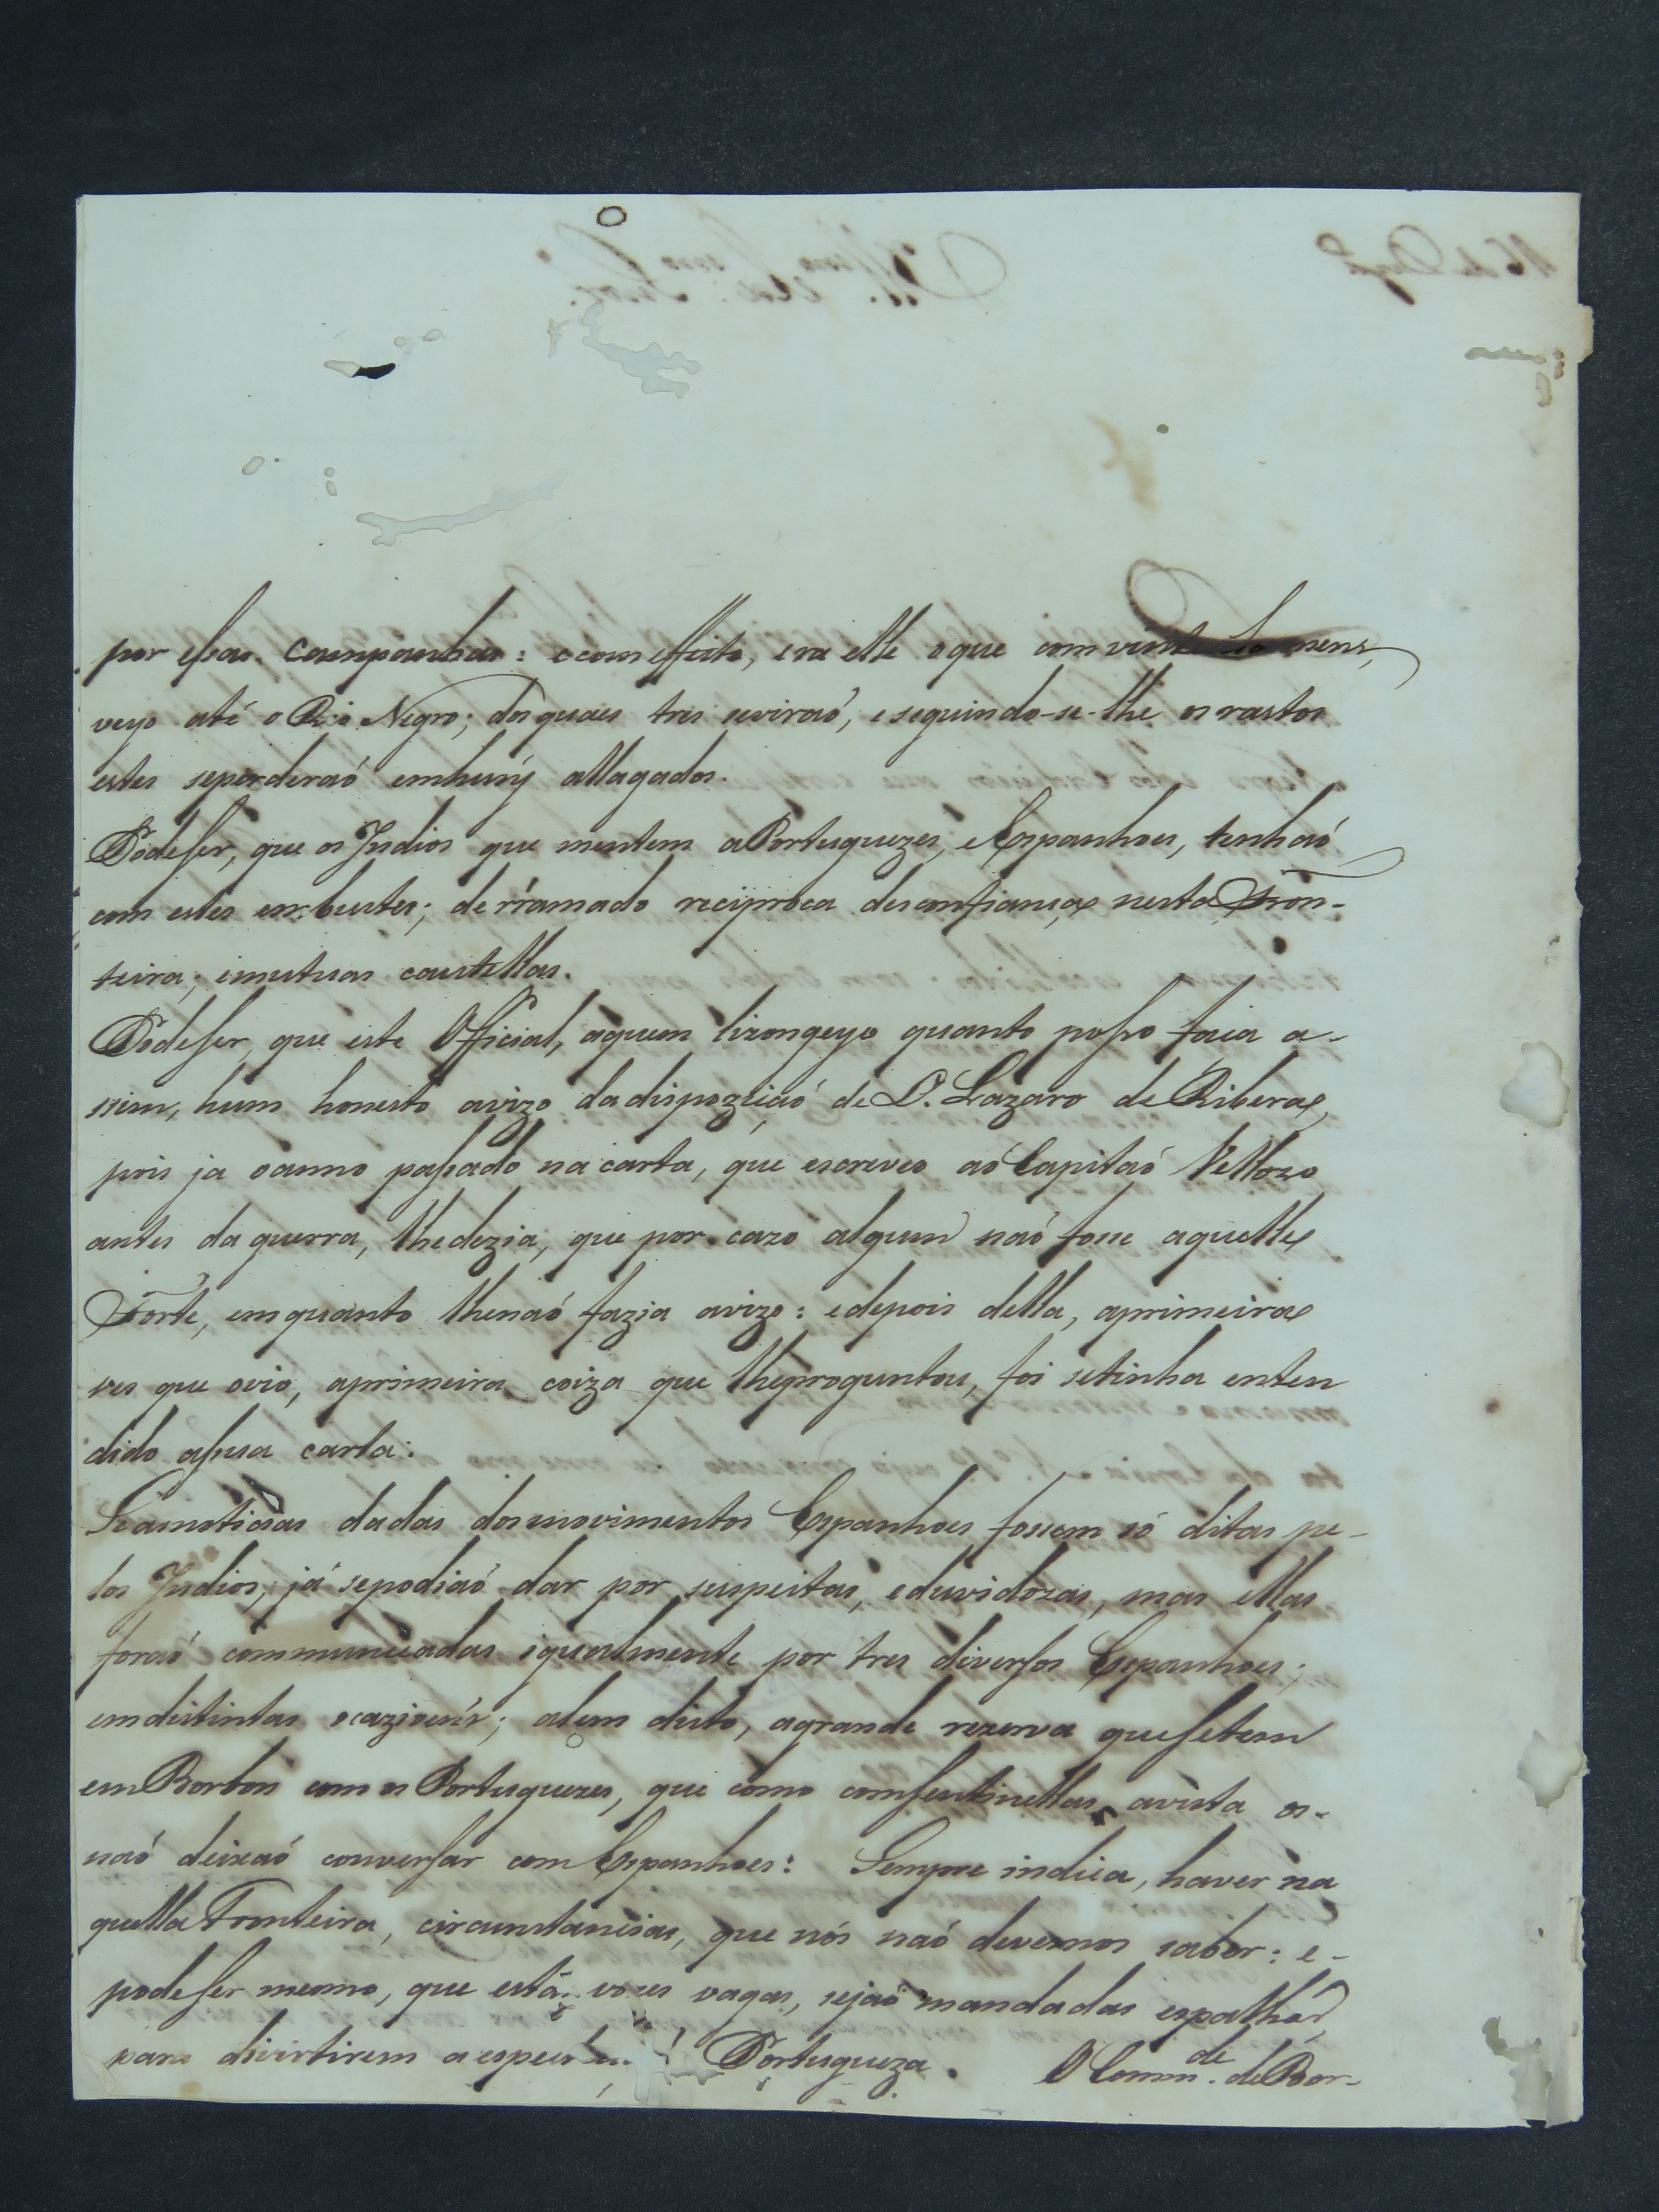 por essas campanhas: ecom effeito, era elle oque com vinte homens,
veyo até o Rio Negro; dos quaes tres seviraó, eseguindo-se-lhe os rastos
estes seperderaó emhuns allagados.
Podeser, que os Indios que mentem aPortuguezes, eEspanhoes, tenhaó
com estes embustes; derramado reciproca desconfiansa nesta Fron-
teira; emutuas cautellas.
Podeser, que este Official, aquem lizongeyo quanto posso facia a-
ssim, hum honesto avizo dadispoziçaó de D. Lazaro de Ribera,
pois ja oanno passado na carta, que escreveo aó Capitaó Vellozo
antes da guerra, lhedezia, que por cazo algum naó fosse aquelle
Forte, emquanto lhenaó fazia avizo: edepois della, aprimeira
ves que ovio, aprimeira coiza que lheproguntou, foi setinha enten
dido asua carta.
Seasnoticias dadas dosmovimentos Espanhoes fossem só ditas pe-
los Indios, já sepodiaó dar por suspeitas, eduvidozas, mas ellas
foraó communicadas igualmente por tres diversos Espanhoes;
emdistintas ocazioens; alem disto, agrande rezerva quesetem
emBorbon com os Portuguezes, que como comsentinellas avista os-
naó deixaó conversar com Espanhoes: Sempre indica, haver na
quella Fronteira, circunstancias, que nós naó devemos saber: e-
podeser mesmo, que estas vozes vagas, sejaó mandadas espalhar
para divirtirem Portugueza. O Comm.de deBor-